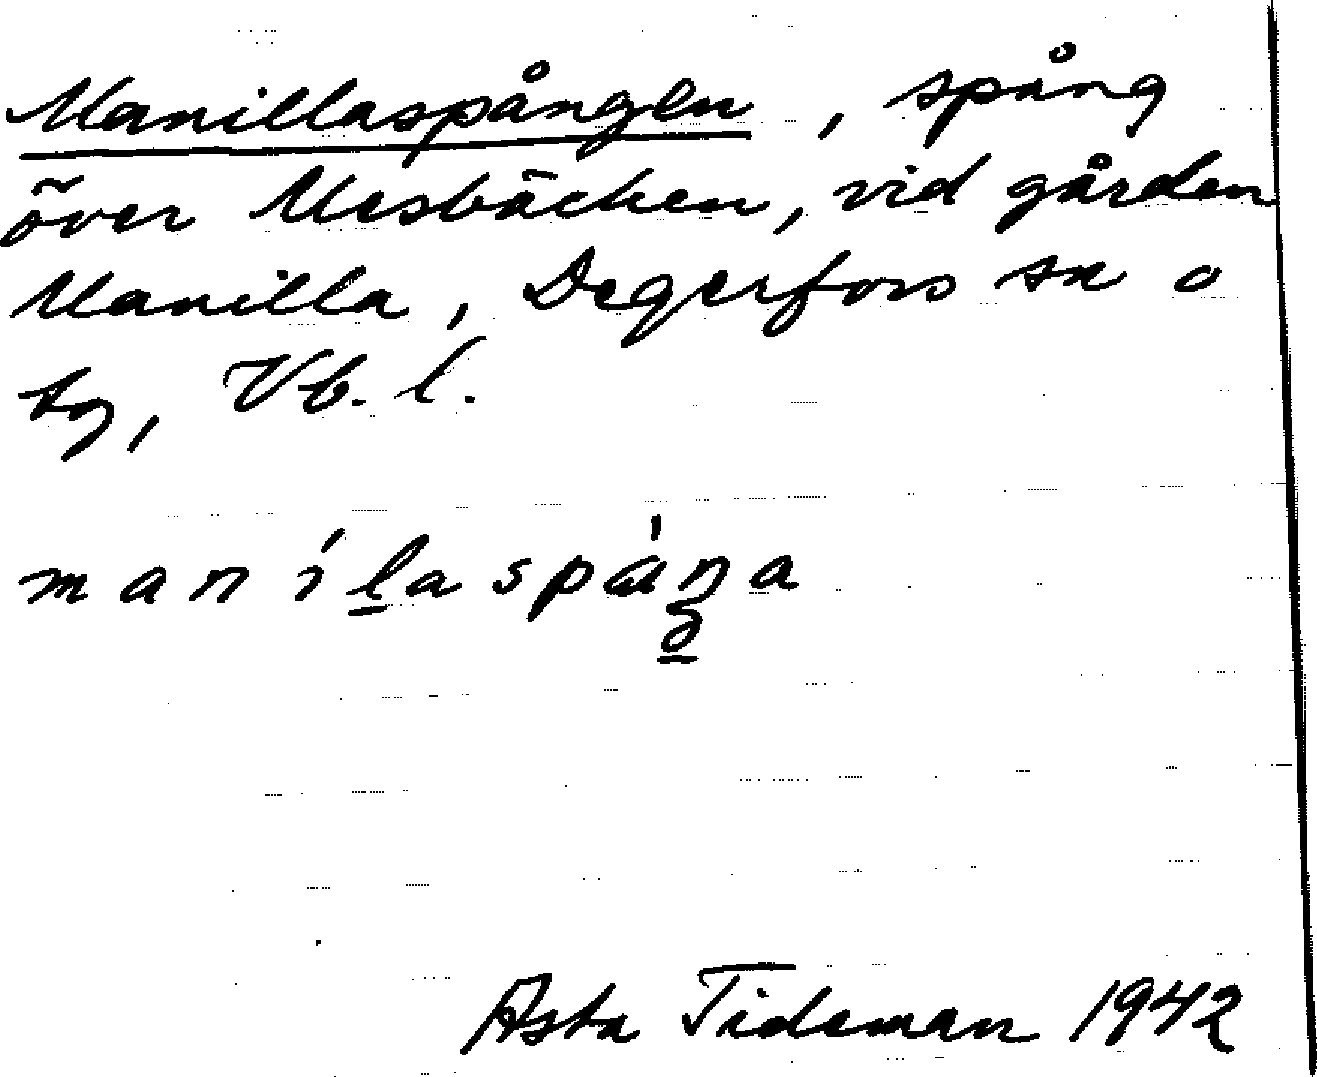 Manillaspången, spång
över Mesbäcken, vid gården
Manilla, Degerfors sn o
by, Vb. l.
manílaspáŋa
Asta Tideman 1942